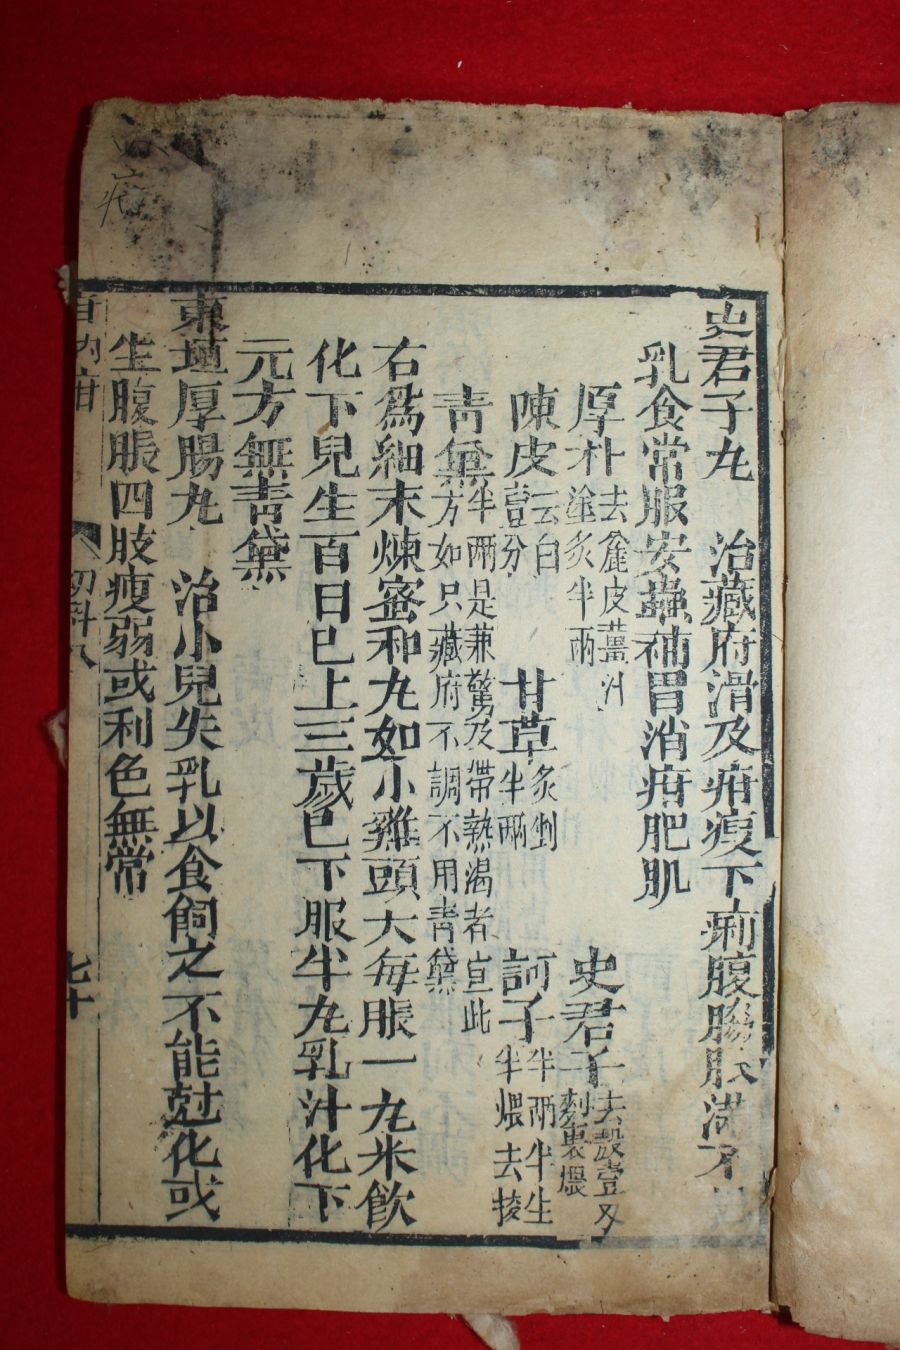 史君子丸　治藏府滑及疳瘦下痢腹脇脹滿不
乳食常服安蟲補胃消疳肥肌
厚朴去麄皮薑汁塗炙半兩　史君子去殼壹又麪裹煨
陳皮去白壹分　甘草炙剉半兩　訶子半兩半生半煨去核
靑黛半兩是兼驚及帶熱渴者宣此方如只藏府不調不用靑黛
右爲細末煉蜜和丸如小雞頭大每服一丸米飮
化下兒生百日已上三歲已下服半丸乳汁化下
元方無靑黛
東垣厚腸丸　治小兒失乳以食飼之不能尅化或
生腹脹四肢瘦弱或利色無常
内疳
幼科八
七十